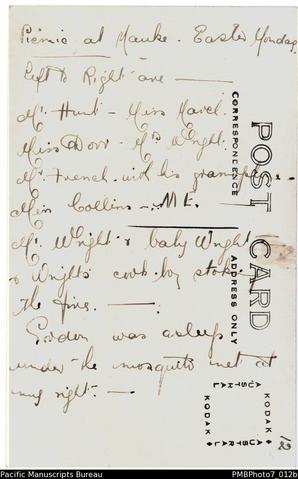 Picnic at Mauke. Easter Monday.
Left to Right are —
Mr. Hunt - Miss
Miss Dorr - Mrs Wright.
Mr. French with his
Miss Collins - ME.
Mr. Wright & baby Wright
& Wright's cook boy
the fire. —
Gordon was asleep
under the mosquito net at
my right. —
POST CARD
CORRESPONDENCE
ADDRESS ONLY
KODAK
AUSTRAL
KODAK
Pacific Manuscripts Bureau
PMBPhoto7_012b